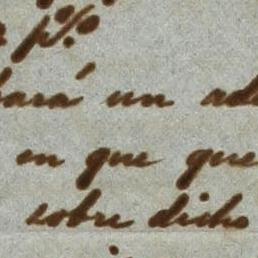 p%
bará un ad
en que que
sobre dicho